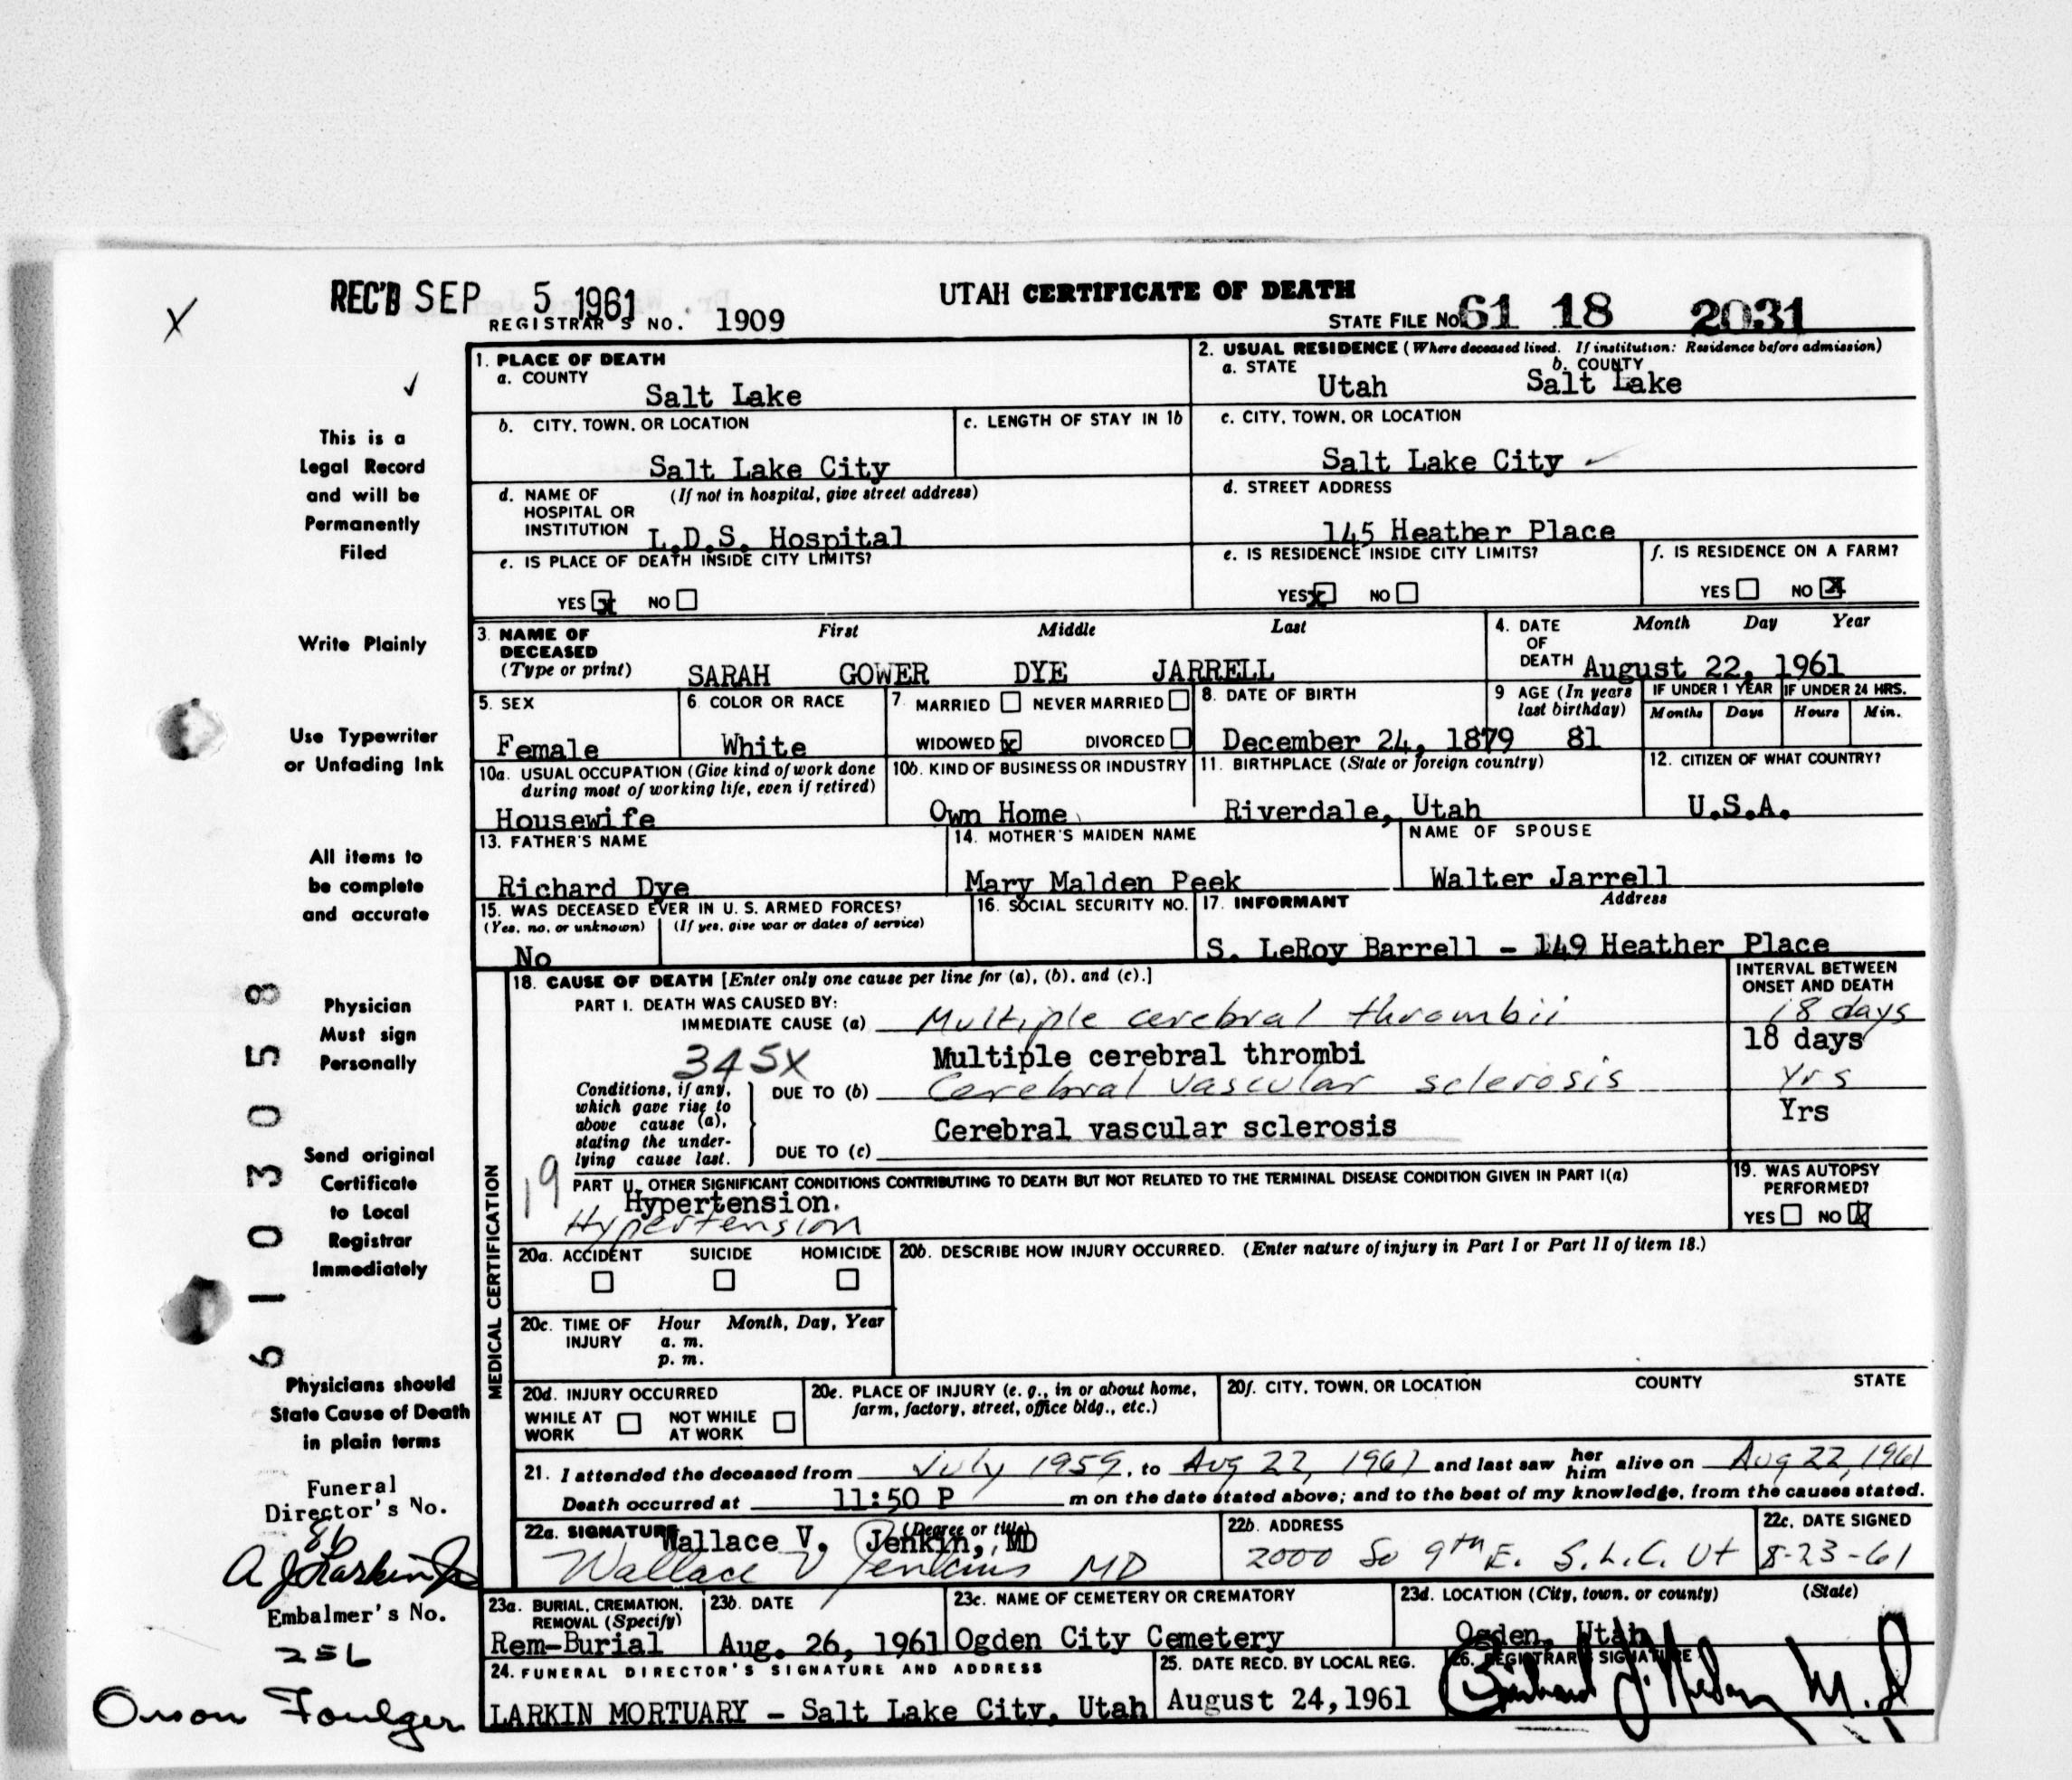 REC'D SEP 5 1961
UTAH CERTIFICATE OF DEATH
REGISTRAR'S NO. 1909
STATE FILE NO. 61 18 2031
X
✓
This is a
Legal Record
and will be
Permanently
Filed
Write Plainly
Use Typewriter
or Unfading Ink
All items to
be complete
and accurate
Physician
Must sign
Personally
Send original
Certificate
to Local
Registrar
Immediately
Physicians should
State Cause of Death
in plain terms
6103058
Funeral
Director's No.
86
A J Larkin Jr
Embalmer's No.
256
Orson Foulger
1. PLACE OF DEATH
a. COUNTY
Salt Lake
2. USUAL RESIDENCE (Where deceased lived. If institution: Residence before admission)
a. STATE b. COUNTY
Utah Salt Lake
b. CITY, TOWN, OR LOCATION
Salt Lake City
c. LENGTH OF STAY IN 1b
c. CITY, TOWN, OR LOCATION
Salt Lake City ✓
d. NAME OF (If not in hospital, give street address)
HOSPITAL OR
INSTITUTION L.D.S. Hospital
d. STREET ADDRESS
145 Heather Place
e. IS PLACE OF DEATH INSIDE CITY LIMITS?
YES x NO
e. IS RESIDENCE INSIDE CITY LIMITS?
YES x NO
f. IS RESIDENCE ON A FARM?
YES NO x
3. NAME OF DECEASED (Type or print) First Middle Last
SARAH GOWER DYE JARRELL
4. DATE OF DEATH Month Day Year
August 22, 1961
5. SEX
Female
6. COLOR OR RACE
White
7. MARRIED NEVER MARRIED
WIDOWED x DIVORCED
8. DATE OF BIRTH
December 24, 1879
9 AGE (In years last birthday)
81
IF UNDER 1 YEAR IF UNDER 24 HRS.
Months Days Hours Min.
10a. USUAL OCCUPATION (Give kind of work done
during most of working life, even if retired)
Housewife
10b. KIND OF BUSINESS OR INDUSTRY
Own Home
11. BIRTHPLACE (State or foreign country)
Riverdale, Utah
12. CITIZEN OF WHAT COUNTRY?
U.S.A.
13. FATHER'S NAME
Richard Dye
14. MOTHER'S MAIDEN NAME
Mary Malden Peek
NAME OF SPOUSE
Walter Jarrell
15. WAS DECEASED EVER IN U. S. ARMED FORCES?
(Yes, no, or unknown) (If yes, give war or dates of service)
No
16. SOCIAL SECURITY NO.
17. INFORMANT Address
S. LeRoy Barrell - 149 Heather Place
MEDICAL CERTIFICATION
18. CAUSE OF DEATH [Enter only one cause per line for (a), (b), and (c).]
INTERVAL BETWEEN
ONSET AND DEATH
PART I. DEATH WAS CAUSED BY:
IMMEDIATE CAUSE (a) Multiple cerebral thrombii 18 days
345X Multiple cerebral thrombi 18 days
Conditions, if any,
which gave rise to
above cause (a),
stating the under-
lying cause last.
DUE TO (b) Cerebral vascular sclerosis yrs
Cerebral vascular sclerosis Yrs
DUE TO (c)
19
PART II. OTHER SIGNIFICANT CONDITIONS CONTRIBUTING TO DEATH BUT NOT RELATED TO THE TERMINAL DISEASE CONDITION GIVEN IN PART I(a)
Hypertension.
Hypertension
19. WAS AUTOPSY
PERFORMED?
YES NO x
20a. ACCIDENT SUICIDE HOMICIDE
20b. DESCRIBE HOW INJURY OCCURRED. (Enter nature of injury in Part I or Part II of item 18.)
20c. TIME OF INJURY Hour Month, Day, Year
a. m.
p. m.
20d. INJURY OCCURRED
WHILE AT WORK NOT WHILE AT WORK
20e. PLACE OF INJURY (e. g., in or about home,
farm, factory, street, office bldg., etc.)
20f. CITY, TOWN, OR LOCATION COUNTY STATE
21. I attended the deceased from July 1959, to Aug 22, 1961 and last saw her him alive on Aug 22, 1961
Death occurred at 11:50 P m on the date stated above; and to the best of my knowledge, from the causes stated.
22a. SIGNATURE (Degree or title)
Wallace V. Jenkin, MD
Wallace V Jenkins MD
22b. ADDRESS
2000 So 9th E. S.L.C. Ut
22c. DATE SIGNED
8-23-61
23a. BURIAL, CREMATION,
REMOVAL (Specify)
Rem-Burial
23b. DATE
Aug. 26, 1961
23c. NAME OF CEMETERY OR CREMATORY
Ogden City Cemetery
23d. LOCATION (City, town, or county) (State)
Ogden, Utah
24. FUNERAL DIRECTOR'S SIGNATURE AND ADDRESS
LARKIN MORTUARY - Salt Lake City, Utah
25. DATE RECD. BY LOCAL REG.
August 24, 1961
26. REGISTRAR'S SIGNATURE
M.D.